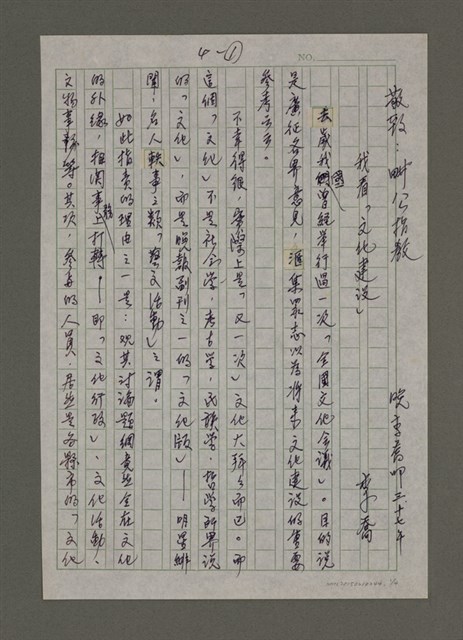 4-①
NO.
敬致: 指教
晚李喬叩 五十七年
我看「文化建設」
李喬
去歲我國曾經舉行過一次「全國文化會議」。目的說
是廣征各界意見,滙集眾志以為將來文化建設的重要
參考云云。
不幸得很,實際上是「又一次」文化大拜拜而已。而
這個「文化」不是社會學,考古學,民族學,哲學所界說
的「文化」,而是晚報副刊之一的「文化版」——明星緋
聞,名人軼事之類「藝文活動」之謂。
如此指責的理由之一是:觀其討論題綱竟然全在文化
的外緣,枝潤事務上打轉——即「文化行政」、文化活動、
文物事務等。其次,參與的人員,居然是各縣市的「文化